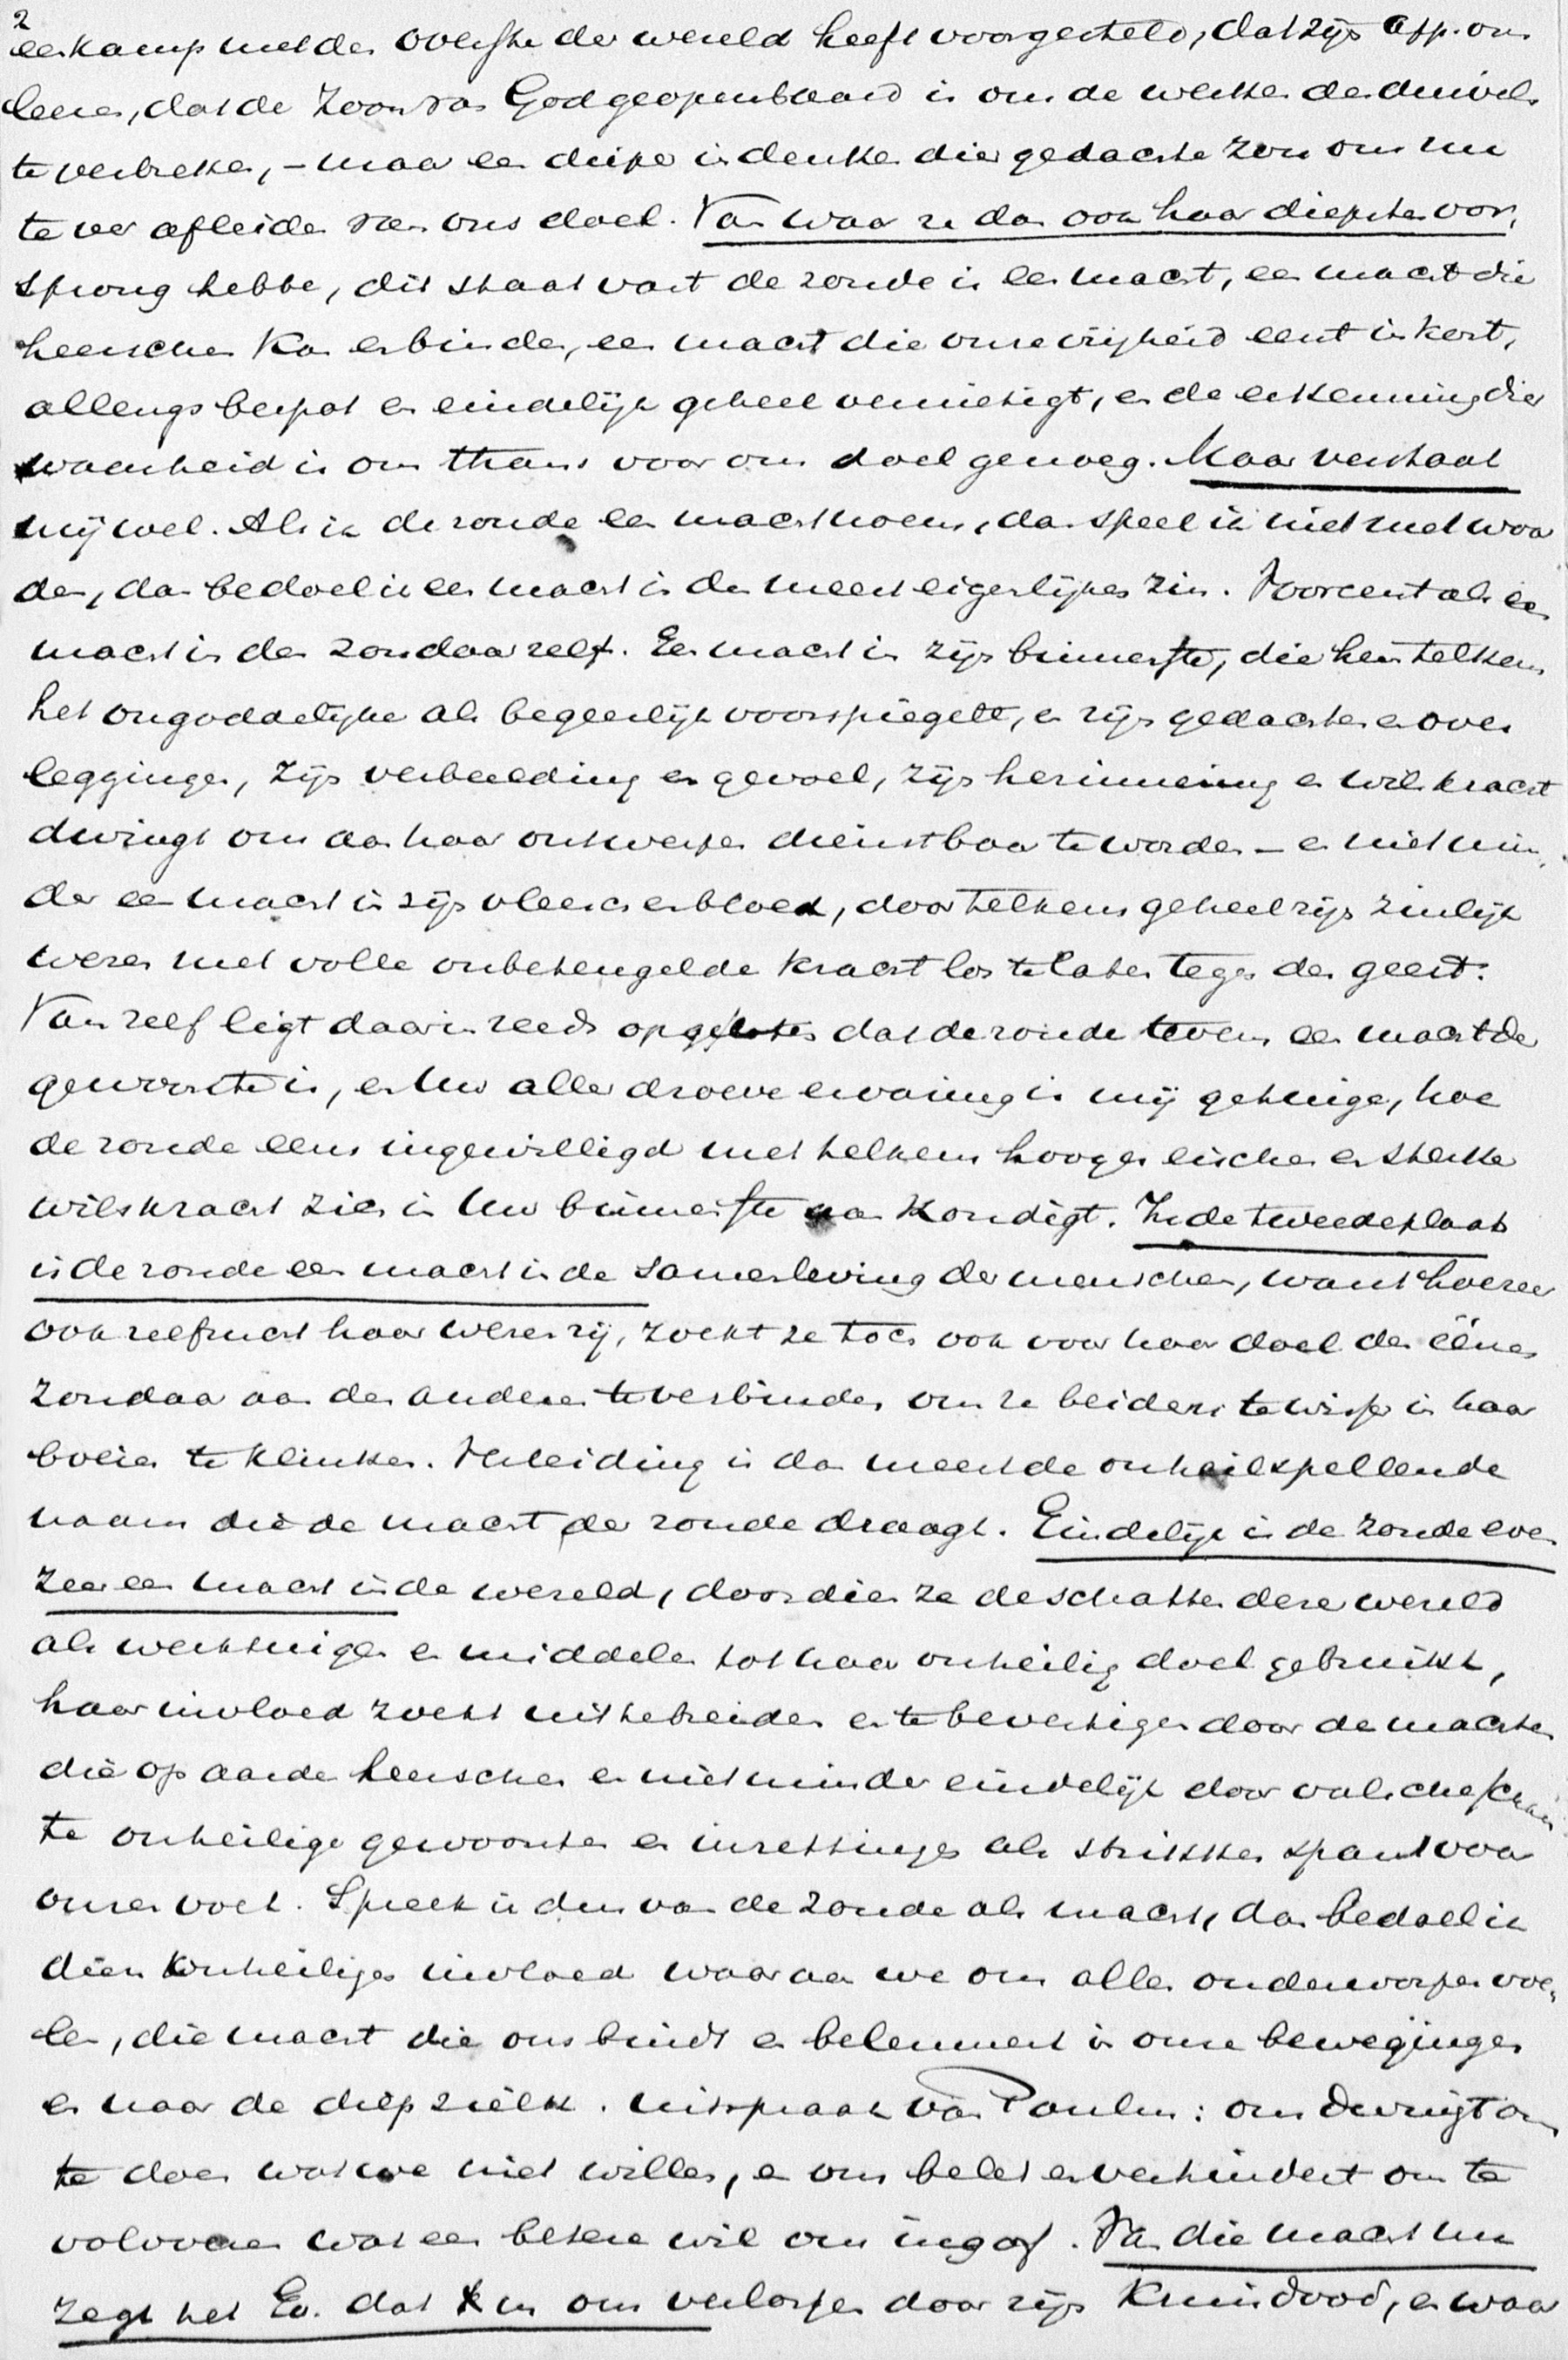 2
een kamp met den overste der wereld heeft voorgesteld, dat zijn App. ons
leeren, dat de Zoon van God geopenbaard is om de werken des duivels
te verbreken, – maar een dieper indenken dier gedachte zou ons nu
te ver afleiden van ons doel. Van waar ze dan ook haar diepsten oor,
sprong hebbe, dit staat vast de zonde is een macht, een macht die
heerschen kan en binden, een macht die onze vrijheid eerst inkort,
allengs beperkt en eindelijk geheel vernietigt, en de erkenning dier
waarheid is ons thans voor ons doel genoeg. Maar verstaat
mij wel. Als ik de zonde een macht noem, dan speel ik niet met woor
den, dan bedoel ik een macht in den meest eigenlijken zin. Vooreerst als een
macht in den zondaar zelf. Een macht in zijn binnenste, die hem telkens
het ongoddelijke als begeerlijk voorspiegelt, en zijn gedachten en over
leggingen, zijn verbeelding en gevoel, zijn herinnering en wilskracht
dwingt om aan haar ontwerpen dienstbaar te worden – en niet min,
der een macht in zijn vleesch en bloed, door telkens geheel zijn zinlijk
wezen met volle onbeteugelde kracht los te laten tegen den geest.
Van zelf ligt daarin reeds opgesloten dat de zonde tevens een macht der
gewoonte is, en Uw aller droeve ervaring is mij getuige, hoe
de zonde eens ingewilligd met telkens hooger eischen en sterker
wilskracht zich in Uw binnenste aankondigt. In de tweede plaats
is de zonde een macht in de samenleving der menschen, want hoezeer
ook zelfzucht haar wezen zij, zoekt ze toch ook voor haar doel den éénen
zondaar aan den anderen te verbinden, om ze beiden te wisser in haar
boeien te klinken. Verleiding is dan meest de onheilspellende
naam die de macht der zonde draagt. Eindelijk is de zonde even
zeer een macht in de wereld, door dien ze de schatten dezer wereld
als werktuigen en middelen tot haar onheilig doel gebruikt,
haar invloed zoekt uit te breiden en te bevestigen door de machten
die op aarde heerschen en niet minder eindelijk door valsche
te onheilige gewoonten en inzettingen als strikken spant voor
onzen voet. Spreek ik dus van de zonde als macht, dan bedoel ik
dien onheiligen invloed waaraan we ons allen onderworpen voe,
len, die macht die ons bindt en belemmert in onze bewegingen
en naar de diep zielk. uitspraak van Paulus: ons dwingt om
te doen wat we niet willen, en ons belet en verhindert om te
volvoeren wat een betere wil ons ingaf. Van die macht nu
zegt het Ev. dat X us ons verloste door zijn Kruisdood, en waar